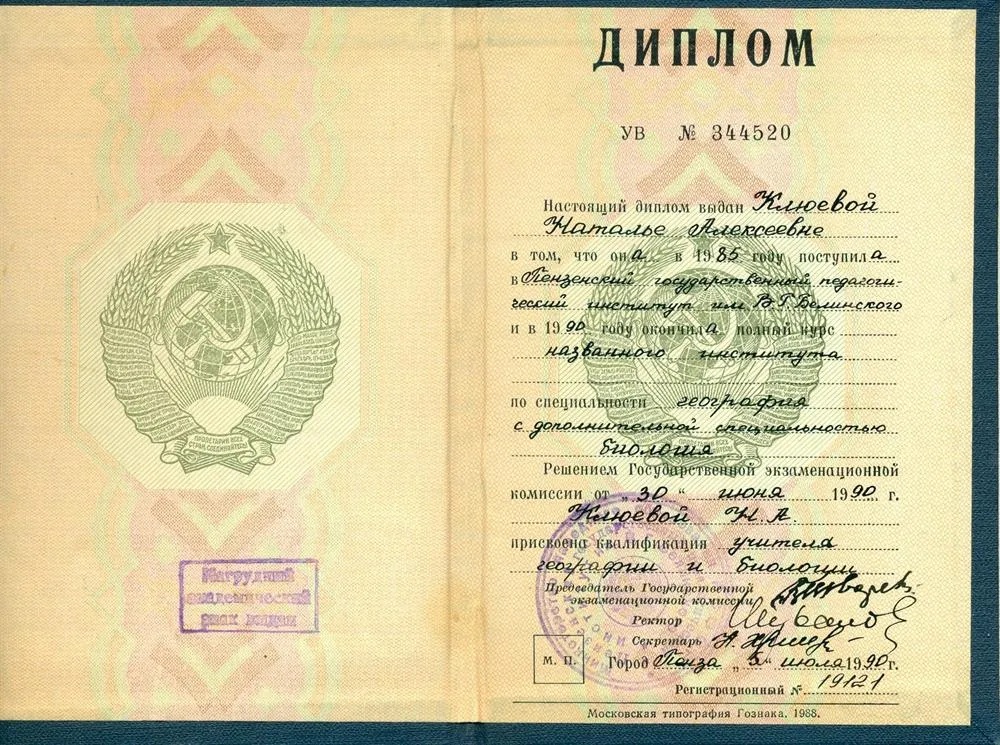 ПРОЛЕТАРИИ ВСЕХ
СТРАН, СОЕДИНЯЙТЕСЬ!
Нагрудный
академический
знак выдан
ДИПЛОМ
УВ № 344520
Настоящий диплом выдан Клюевой
Наталье Алексеевне
в том, что она в 1985 году поступила
в Пензенский государственный педагоги-
ческий институт им. В.Г. Белинского
и в 1990 году окончила полный курс
названного института
по специальности география
с дополнительной специальностью
биология
Решением Государственной экзаменационной
комиссии от „30" июня 1990 г.
Клюевой Н.А.
присвоена квалификация учителя
географии и биологии
Председатель Государственной
экзаменационной комиссии
Ректор
Секретарь
М. П.
Город Пенза „5" июля 1990 г.
Регистрационный № 19121
Московская типография Гознака. 1988.